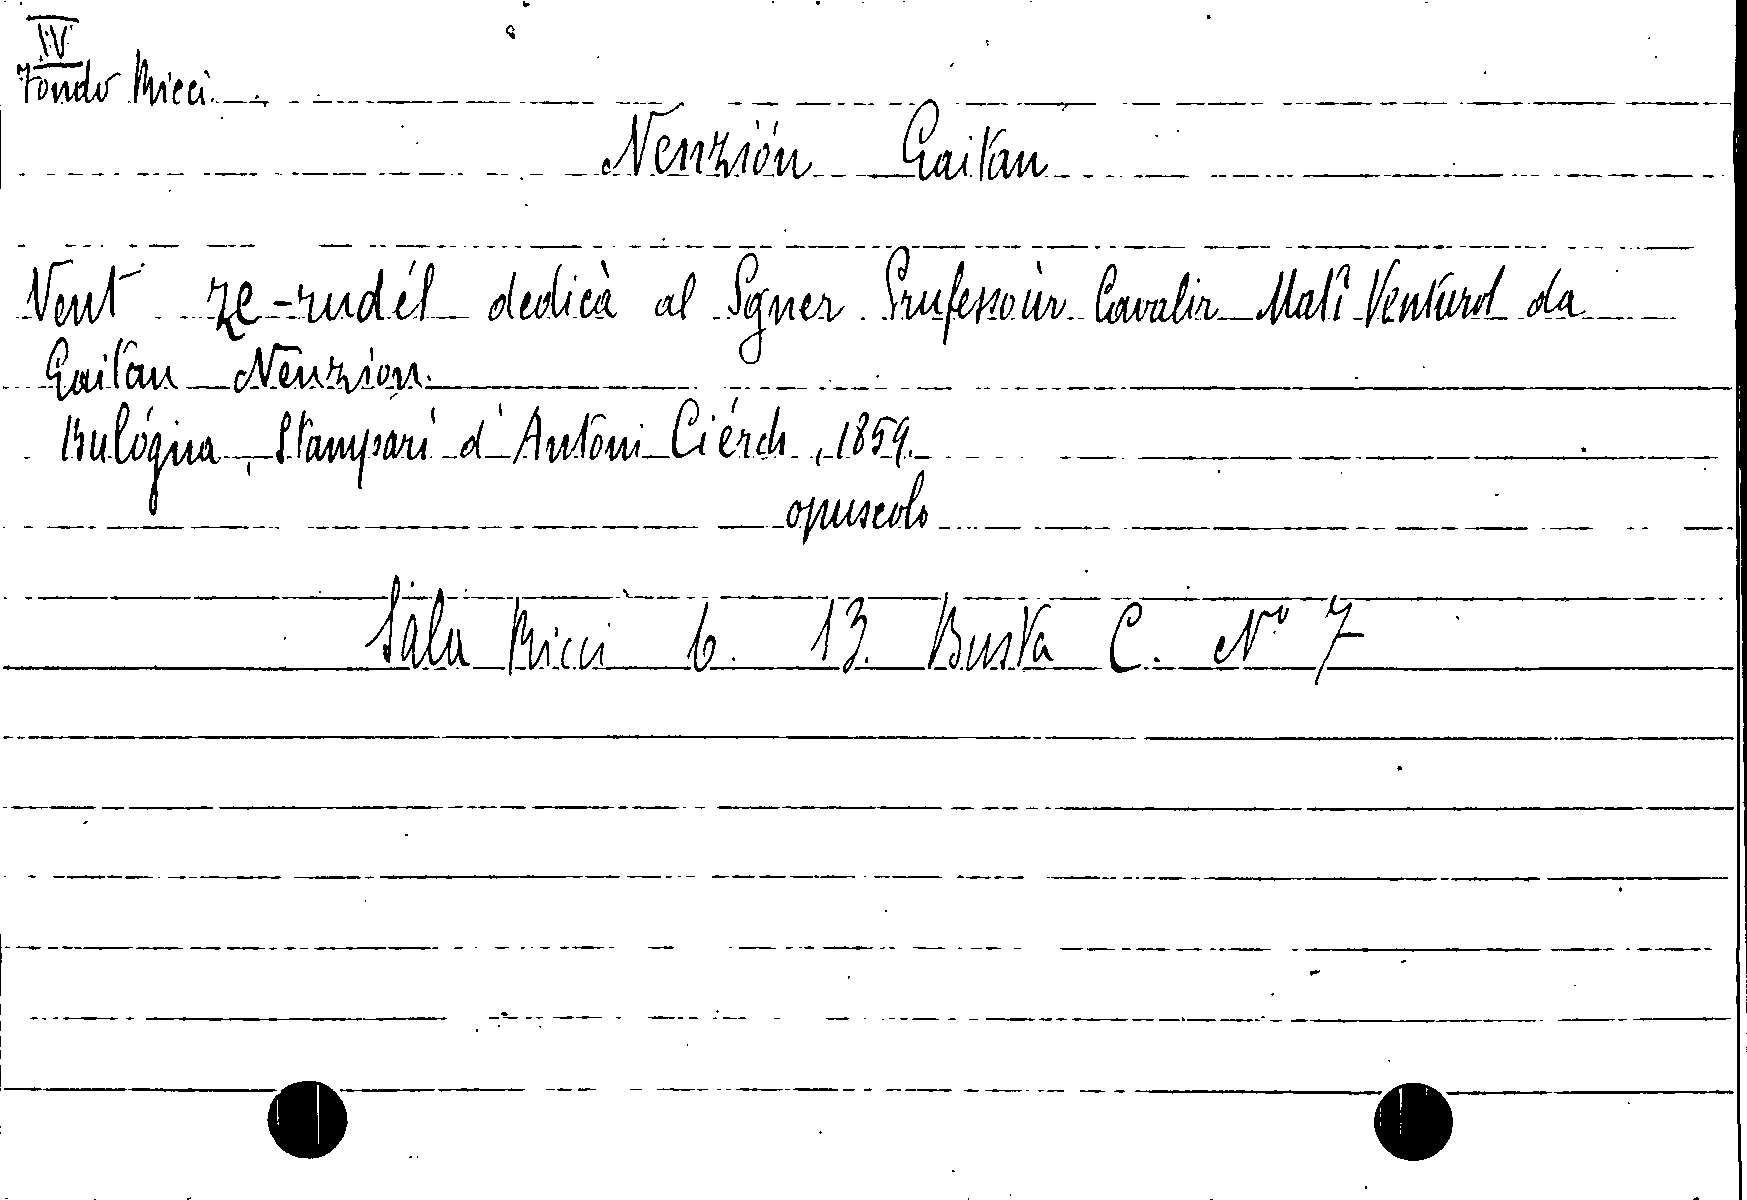 IV
Fondo Ricci.
Nenziön Gaitan
Vent ze-rudèl dedicà al Sgner Prufessòur Cavalir Matî Venturol da
Gaitan Nenzion.
Bulógna, Stamparì d' Antoni Ciérch, 1859.
opuscolo
Sala Ricci b. 13. Busta C. N° 7